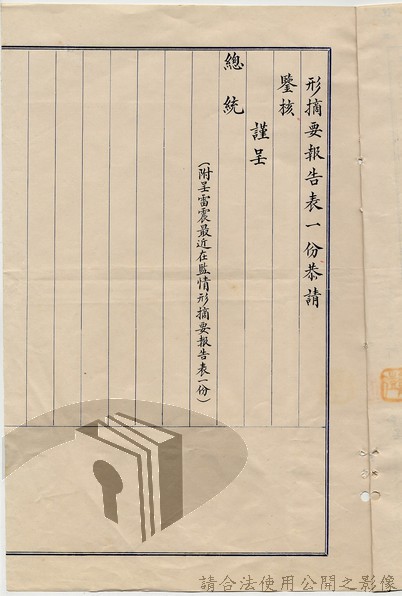 形摘要報告表一份恭請
鑒核
謹呈
總統
（附呈雷震最近在監情形摘要報告表一份）
請合法使用公開之影像